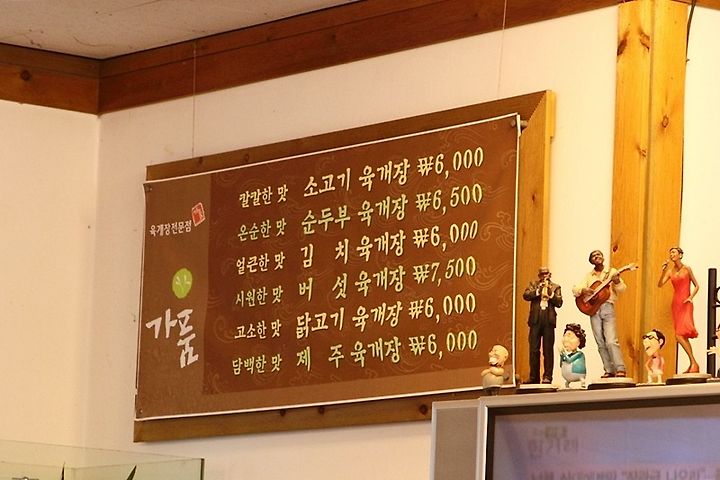 육개장전문점
가품
칼칼한 맛 소고기 육개장 ₩6,000
온순한 맛 순두부 육개장 ₩6,500
얼큰한 맛 김 치 육개장 ₩6,000
시원한 맛 버 섯 육개장 ₩7,500
고소한 맛 닭고기 육개장 ₩6,000
담백한 맛 제 주 육개장 ₩6,000